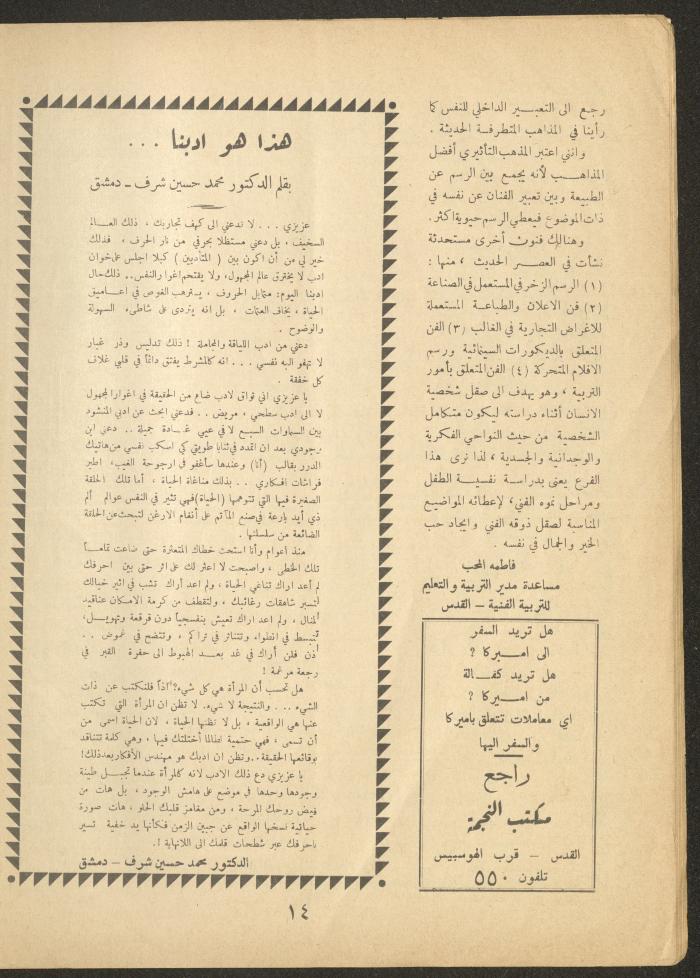 رجع الى التعبير الداخلي للنفس كما
رأينا في المذاهب المتطرفة الحديثة .
وانني اعتبر المذهب التأثيري أفضل
المذاهب لأنه يجمع بين الرسم عن
الطبيعة وبين تعبير الفنان عن نفسه في
ذات الموضوع فيعطي الرسم حيوية اكثر .
وهنالك فنون أخرى مستحدثة
نشأت في العصر الحديث ، منها :
(١) الرسم الزخرفي المستعمل في الصناعة
(٢) فن الاعلان والطباعة المستعملة
للاغراض التجارية في الغالب (٣) الفن
المتعلق بالديكورات السينمائية ورسم
الافلام المتحركة (٤) الفن المتعلق بأمور
التربية ، وهو يهدف الى صقل شخصية
الانسان أثناء دراسته ليكون متكامل
الشخصية من حيث النواحي الفكرية
والوجدانية والجسدية ، لذا نرى هذا
الفرع يعنى بدراسة نفسية الطفل
ومراحل نموه الفني، لإعطائه المواضيع
المناسبة لصقل ذوقه الفني وايجاد حب
الخير والجمال في نفسه .
فاطمه المحب
مساعدة مدير التربية والتعليم
للتربية الفنية – القدس
هل تريد السفر
الى اميركا ?
هل تريد كفالة
من اميركا ?
اي معاملات تتعلق باميركا
والسفر اليها
راجع
مكتب النجمة
القدس – قرب الهوسبيس
تلفون ٥٥٠
هذا هو ادبنا ...
بقلم الدكتور محمد حسين شرف – دمشق
عزيزي ... لا تدعني الى كهف تجاربك ، ذلك العالم
السخيف ، بل دعني مستظلا بحرقي من نار الحرف ، فذلك
خير لي من أن اكون بين ( المتأدبين ) كيلا اجلس على خوان
ادب لا يخترق عالم المجهول، ولا يقتحم اغوار النفس.. ذلك حال
ادبنا اليوم: متمايل الحروف ، يسترهب الغوص في اعماق
الحياة ، يخاف العتمات ، بل انه يتردى على شاطىء السهولة
والوضوح .
دعني من ادب اللياقة والمجاملة ! ذلك تدليس وذر غبار
لا تهفو اليه نفسي ... انه كالمشرط يفتق دائماً في قلبي غلاف
كل خفقة .
يا عزيزي اني تواق لادب ضاع من الحقيقة في اغوار المجهول
لا الى ادب سطحي ، مريض .. فدعني ابحث عن ادبي المنشود
بين السماوات السبع لا في عيني غادة جميلة .. دعني ابن
وجودي بعد ان اتمدد في ثنايا طويتي كي اسكب نفسي من هاتيك
الدرر بقالب (أنا) وعندها سأغفو في ارجوحة الغيب، اطير
فراشات افكاري .. بذلك مناغاة الحياة ، أما تلك الحلقة
الصغيرة فيها التي تتوهمها (الحياة) فهي تثير في النفس عوالم ألم
ذي أيد بارعة في صنع المآتم على أنغام الارغن لتبحث عن الحلقة
الضائعة من سلسلتها .
منذ اعوام وأنا استحث خطاك المتعثرة حتى ضاعت تماماً
تلك الخطى ، واصبحت لا اعثر لك على اثر حتى بين احرفك
لم أعد اراك تناغي الحياة ، ولم اعد أراك تشب في اثير خيالك
لتسبر شاهقات رغائبك ، ولتقطف من كرمة الامكان عناقيد
المنال ، ولم اعد اراك تعيش بنفسجياً دون قرقعة وتهويل،
تنبسط في انطواء وتتناثر في تراكم ، وتتضح في غموض ..
أذن فلن أراك في غد بعد الهبوط الى حفرة القبر في
رجعة مرغمة !
هل تحسب أن المرأة هي كل شيء؟ اذاً فلنكتب عن ذات
الشيء ... والنتيجة لا شيء. لا تظن ان المرأة التي تكتب
عنها هي الواقعية ، بل لا تظنها الحياة ، لان الحياة اسمى من
أن تسمى ، فهي حتمية لطالما أختلتك فيها ، وهي كلمة تتناقد
بوقائعها الحقيقة.. وتظن ان ادبك هو مهندس الأفكار بعد ذلك!
يا عزيزي دع ذلك الادب لانه كالمرأة عندما تجبل طينة
وجودها وحدها في موضع على هامش الوجود ، بل هات من
فيض روحك المرحة ، ومن مغامز قلبك الحلو ، هات صورة
حياتية نسخها الواقع عن جبين الزمن فكأنها يد خفية تسير
باحرفك عبر شطحات قلمك الى اللانهاية !.
الدكتور محمد حسين شرف – دمشق
١٤